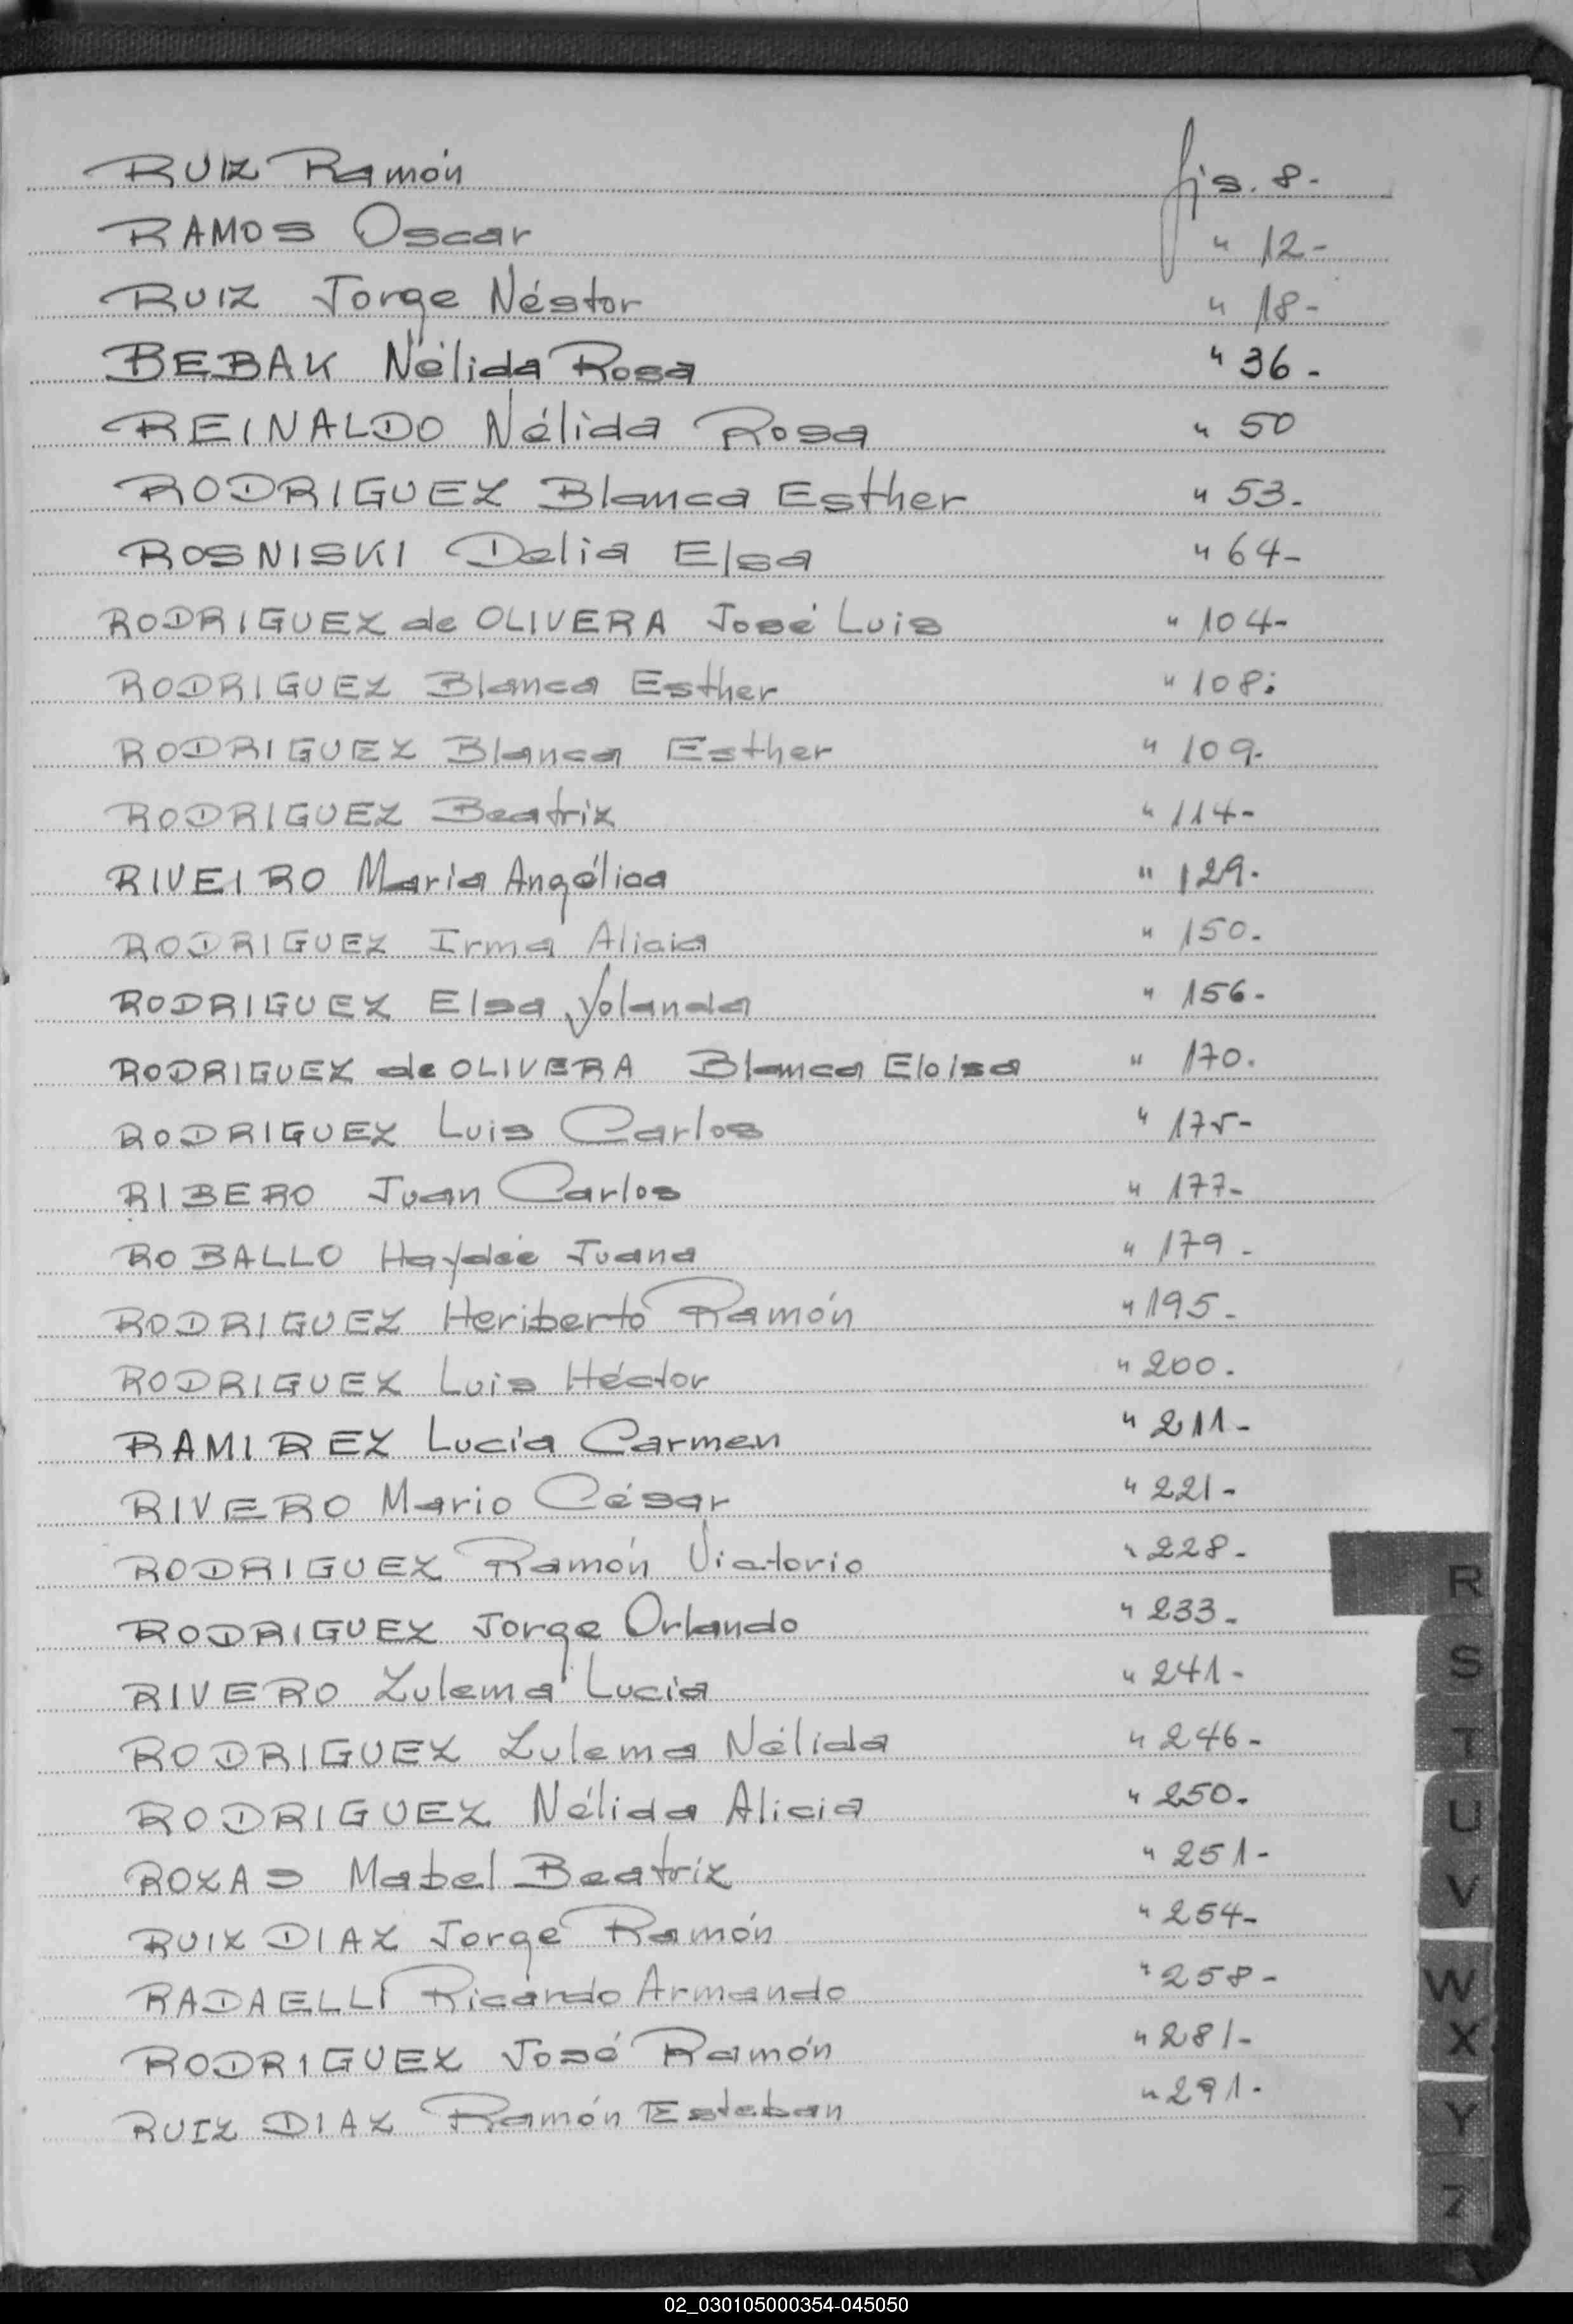 RUIZ Ramón fjs. 8.-
RAMOS Oscar " 12-
RUIZ Jorge Néstor " 18-
BEBAK Nélida Rosa " 36-
REINALDO Nélida Rosa " 50
RODRIGUEZ Blanca Esther " 53.
ROSNISKI Delia Elsa " 64-
RODRIGUEZ de OLIVERA José Luis " 104-
RODRIGUEZ Blanca Esther " 108:
RODRIGUEZ Blanca Esther " 109.
RODRIGUEZ Beatriz " 114-
RIVEIRO Maria Angélica " 129.
RODRIGUEZ Irma Alicia " 150.
RODRIGUEZ Elsa Yolanda " 156-
RODRIGUEZ de OLIVERA Blanca Eloisa " 170.
RODRIGUEZ Luis Carlos " 175-
RIBERO Juan Carlos " 177-
ROBALLO Haydée Juana " 179-
RODRIGUEZ Heriberto Ramón " 195-
RODRIGUEZ Luis Héctor " 200.
RAMIREZ Lucía Carmen " 211-
RIVERO Mario César " 221-
RODRIGUEZ Ramón Victorio " 228-
RODRIGUEZ Jorge Orlando " 233-
RIVERO Zulema Lucia " 241-
RODRIGUEZ Zulema Nélida " 246-
RODRIGUEZ Nélida Alicia " 250.
ROZAS Mabel Beatriz " 251-
RUIZ DIAZ Jorge Ramón " 254-
RADAELLI Ricardo Armando " 258-
RODRIGUEZ José Ramón " 281-
RUIZ DIAZ Ramón Esteban " 291-
R
S
T
U
V
W
X
Y
Z
02_030105000354-045050